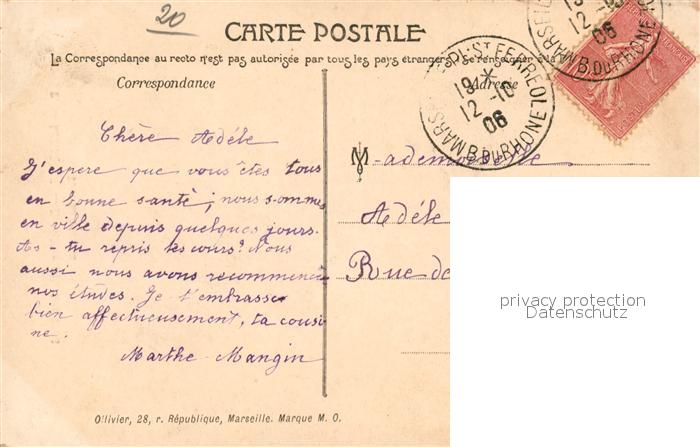 20
CARTE POSTALE
La Correspondance au recto n'est pas autorisée par tous les pays étrangers. Se renseigner à la
Correspondance
Adresse
MARSEILLE PL. St FERREOL
B. DU RHONE
12 -10
06
MARSEI
B. DU RHONE
12
06
Chère Adéle
J'espere que vous êtes tous
en bonne santé; nous sommes
en ville depuis quelques jours.
As-tu repris les cours? Nous
aussi nous avons recommencé
nos études. Je t'embrasse
bien affectueusement, ta cousi
ne.
Marthe Mangin
M-ademoiselle
Adéle
Rue de
privacy protection
Datenschutz
Ollivier, 28, r. République, Marseille. Marque M. O.